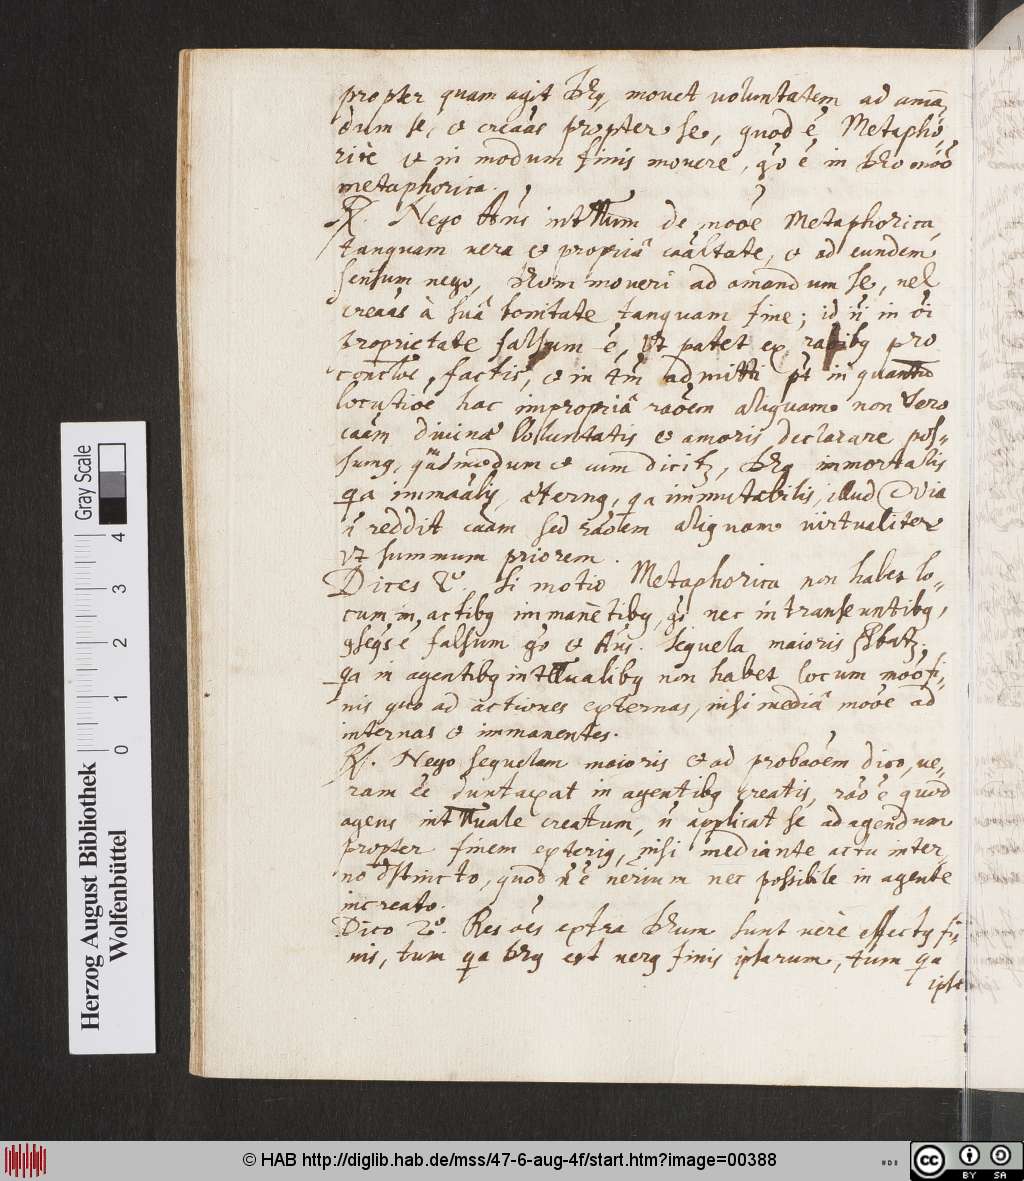 propter quam agit Deus, movet voluntatem ad amā
dum se, et creãas propter se, quod ẽ Metapho-
ricè et in modum finis movere, gõ ẽ in Deo moõ
metaphorica.
R. Nego Ans de moõe Metaphorica,
tanquam vera et propriâ caãltate, et ad eundem
sensum nego, Deum moveri ad amandum se, vel
creãas à suâ bonitate tanquam fine; id ñ in õi
proprietate falsum ẽ, ut patet ex raõibq pro
concloẽ factis, et in tm̃ admitti põt in quantũ
locutiõe hac impropriâ raõem aliquam non vero
caãm divinæ voluntatis et amoris declarare pos-
sumq, quãdmodum et cum dicitz, Deus immortalis
qa immaãlis, æternq, qa immutabilis, illud
ñ reddit caãm sed raõem aliquam virtualiter
ut summum priorem.
Dices 2º. Si motio Metaphorica non habet lo-
cum in actibq immanẽtibq, gõ nec in transeuntibq,
falsum gõ et Ans. Sequela maioris pbatz,
qa in agentibq non habet locum moõ fi-
nis quo ad actiones externas, nisi mediâ moõe ad
internas et immanentes.
R. Nego sequelam maioris et ad probaõem dico, ve-
ram ẽe duntaxat in agentibq creatis, raõ ẽ quod
agens creatum, ñ applicat se ad agendum
propter finem exteriq, nisi mediante actu inter
no dstincto, quod ñ ẽ verum nec possibile in agente
increato.
Dico 2º. Res oẽs extra Deum sunt verè effectq fi-
nis, tum qa Deus est verq finis ipsarum, tum qa
ipse
Herzog August Bibliothek
Wolfenbüttel
Gray Scale
0 1 2 3 4
© HAB http://diglib.hab.de/mss/47-6-aug-4f/start.htm?image=00388
cc BY SA